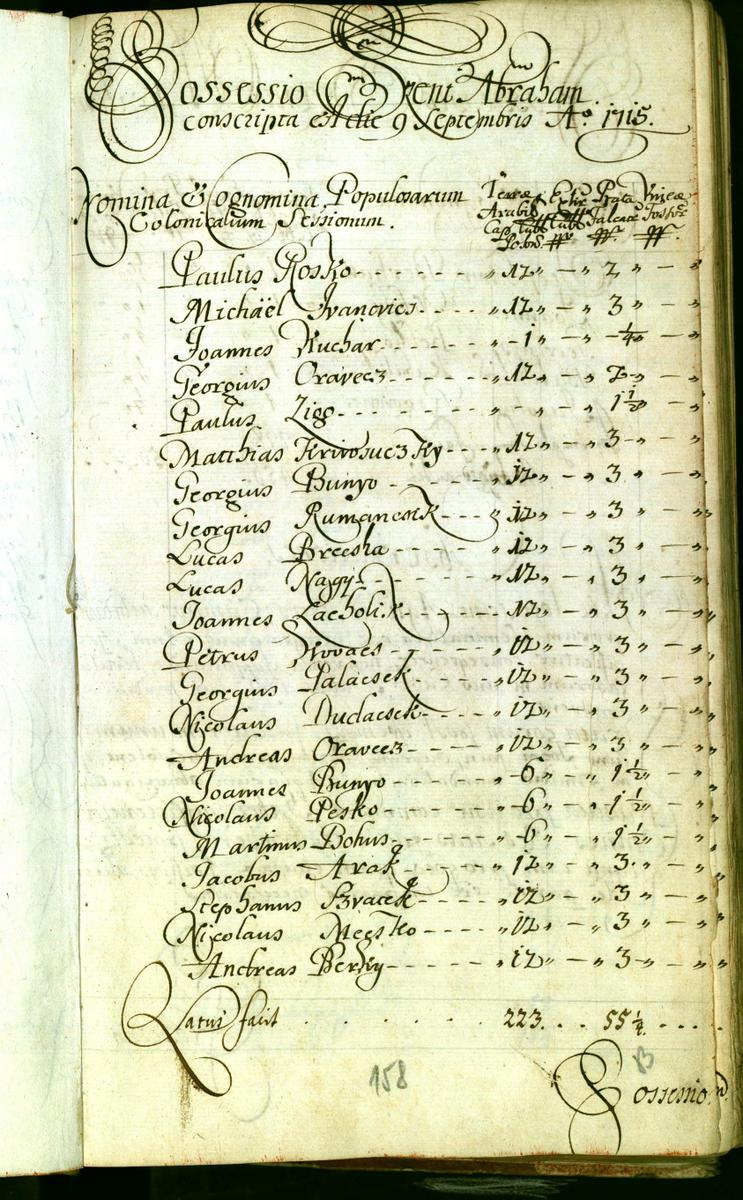 Possessio Szent Abraham
conscripta est die 9 Septembris Aº 1715.
Nomina & Cognomina Populosarum Terræ Extir Prata Vineæ
Colonicalium Sessionum. Arabiles Falcat. Fossor.
Cap. Cub. Cub.
Poson.
Paulus Rosko 12 — 2
Michäel Ivanovics 12 — 3
Joannes Kuchar 1 — ¼
Georgius Oravecz 12 — 2
Paulus Zigo 1½
Matthias Krivosuczky 12 — 3
Georgius Bunyo 12 — 3
Georgius Rumancsik 12 — 3
Lucas Brcesha 12 — 3
Lucas Nagy 12 — 3
Joannes Lacholik 12 — 3
Petrus Kovacs 12 — 3
Georgius Palacsek 12 — 3
Nicolaus Dudacsek 12 — 3
Andreas Oravecz 12 — 3
Joannes Bunyo 6 — 1½
Nicolaus Pesko 6 — 1½
Martinus Bohus 6 — 1½
Jacobus Arak 12 — 3
Stephanus Szvacek 12 — 3
Nicolaus Mesko 12 — 3
Andreas Berky 12 — 3
Latus facit . . . . . 223 . . 55¼ . . . .
158
Possessio